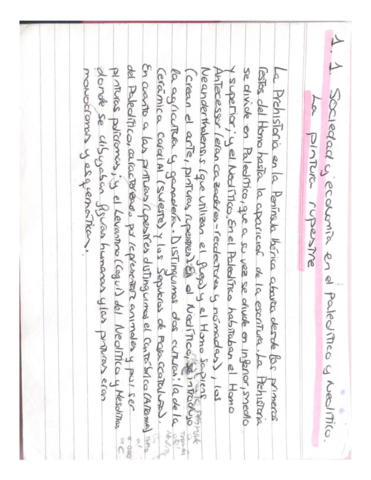 1.1 Sociedad y economía en el Paleolítico y Neolítico.
La pintura rupestre
La Prehistoria en la Península Ibérica abarca desde los primeros
restos del Homo hasta la aparición de la escritura. La Prehistoria
se divide en Paleolítico, que a su vez se divide en inferior, medio
y superior; y el Neolítico. En el Paleolítico habitaban el Homo
Antecessor (eran cazadores-recolectores y nómadas), los
Neanderthalensis (que utilizan el fuego) y el Homo sapiens
(crean el arte, pinturas rupestres). En el Neolítico, se introdujo
la agricultura y ganadería. Distinguimos dos culturas: la de la
Cerámica cardial (sureste) y los Sepulcros de Fosa (Cataluña).
En cuanto a las pinturas rupestres distinguimos el Cantábrico (Altamira)
del Paleolítico, caracterizada por representar animales y por ser
pinturas polícromas; y el Levantino (Cogul) del Neolítico y Mesolítico
donde se dibujaban figuras humanas y las pinturas eran
monocromas y esquemáticas.